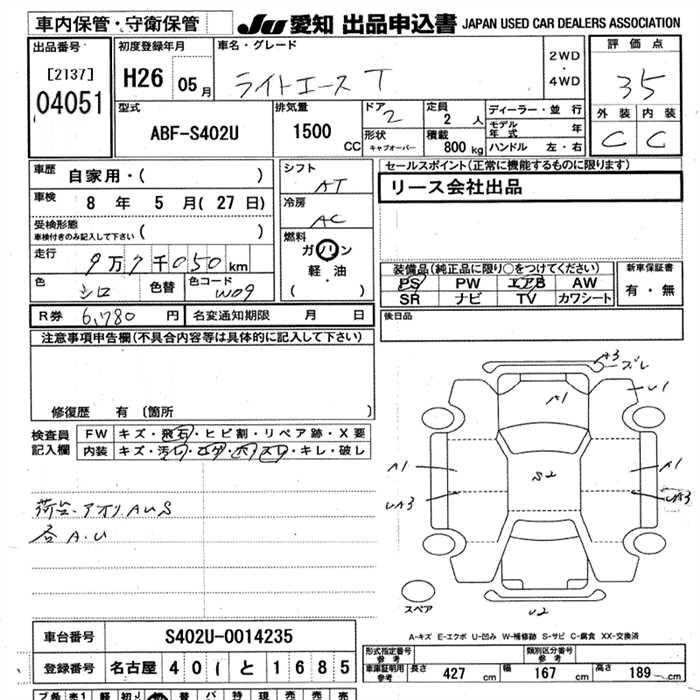 車内保管・守衛保管
JU 愛知 出品申込書 JAPAN USED CAR DEALERS ASSOCIATION
出品番号
[2137]
04051
初度登録年月
H26 05月
車名・グレード
ライトエース T
2WD
・
4WD
評価点
3.5
外装 内装
C C
型式
ABF-S402U
排気量
1500
CC
ドア
2
形状
キャブオーバー
定員
2 人
積載
800 kg
ディーラー・並行
モデル年式 年
ハンドル 左・右
車歴 自家用・( )
車検 8 年 5 月 ( 27 日)
受検形態
車検付きのみ記入して下さい ( )
走行 9万7千050 km
色 シロ 色替 色コード W09
R券 6,780 円 名変通知期限 月 日
シフト
AT
冷房
AC
燃料
ガソリン
軽・油
( ・ )
セールスポイント(正常に機能するものに限ります)
リース会社出品
装備品(純正品に限り○をつけてください)
PS PW エアB AW
SR ナビ TV カワシート
新車保証書
有・無
後日品
注意事項申告欄(不具合内容等は具体的に記入して下さい)
修復歴 有 (箇所 )
検査員記入欄
FW キズ・飛石・ヒビ割・リペア跡・X要
内装 キズ・汚レ・コゲ・穴・スレ・キレ・破レ
荷台・アオリ AUS
各 A.U
A3
ズレ
A1
U1
A1
S2
A1
UA3
UA3
U2
スペア
A-キズ E-エクボ U-凹み W-補修跡 S-サビ C-腐食 XX-交換済
車台番号 S402U-0014235
登録番号 名古屋 40 と 1685
形式指定番号
参考
類別区分番号
参考
車庫証明用
参考
長さ 427 cm 幅 167 cm 高さ 189 cm